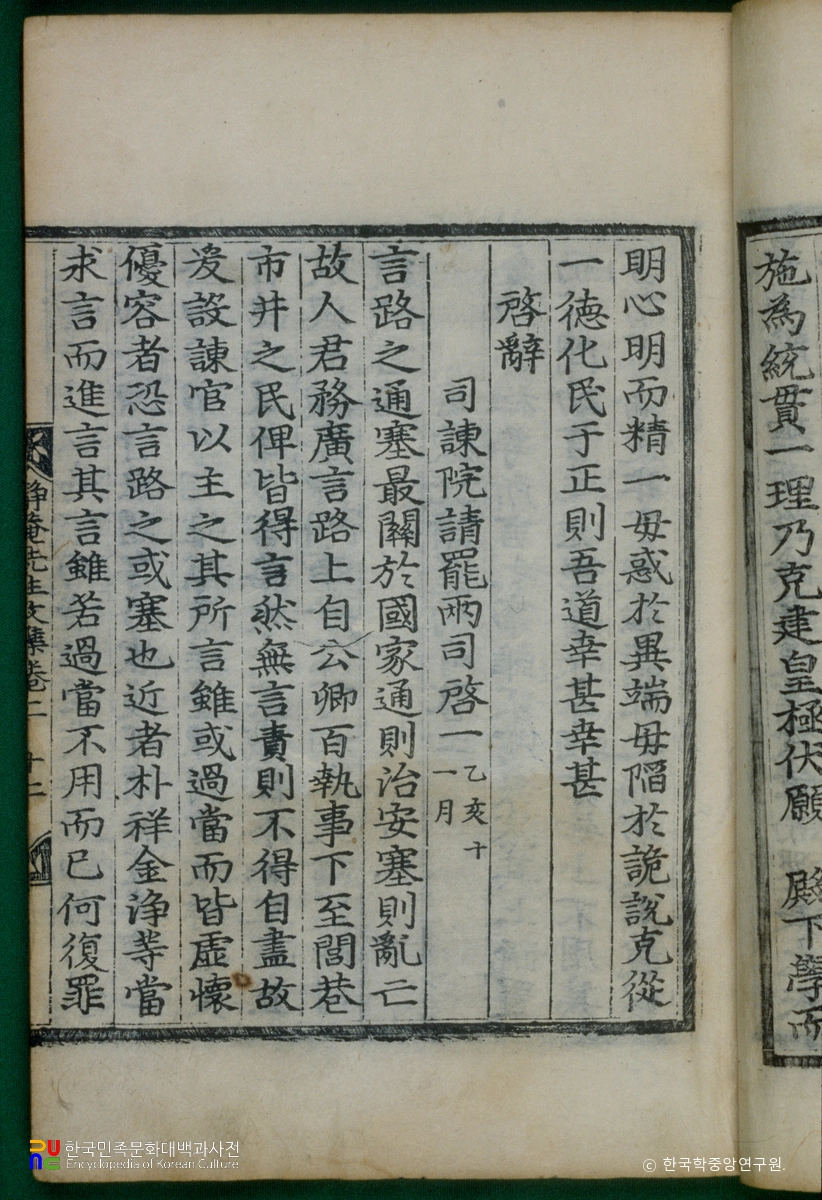 施為統貫一理乃克建皇極伏願 殿下學而
明心明而精一毋惑於異端毋陷於詭說克從
一德化民于正則吾道幸甚幸甚
啓辭
司諫院請罷兩司啓一 乙亥十
一月
言路之通塞最關於國家通則治安塞則亂亡
故人君務廣言路上自公卿百執事下至閭巷
市井之民俾皆得言然無言責則不得自盡故
爰設諫官以主之其所言雖或過當而皆虛懷
優容者恐言路之或塞也近者朴祥金淨等當
求言而進言其言雖若過當不用而已何復罪
靜菴先生文集卷二 十二
한국민족문화대백과사전
Encyclopedia of Korean Culture
© 한국학중앙연구원.